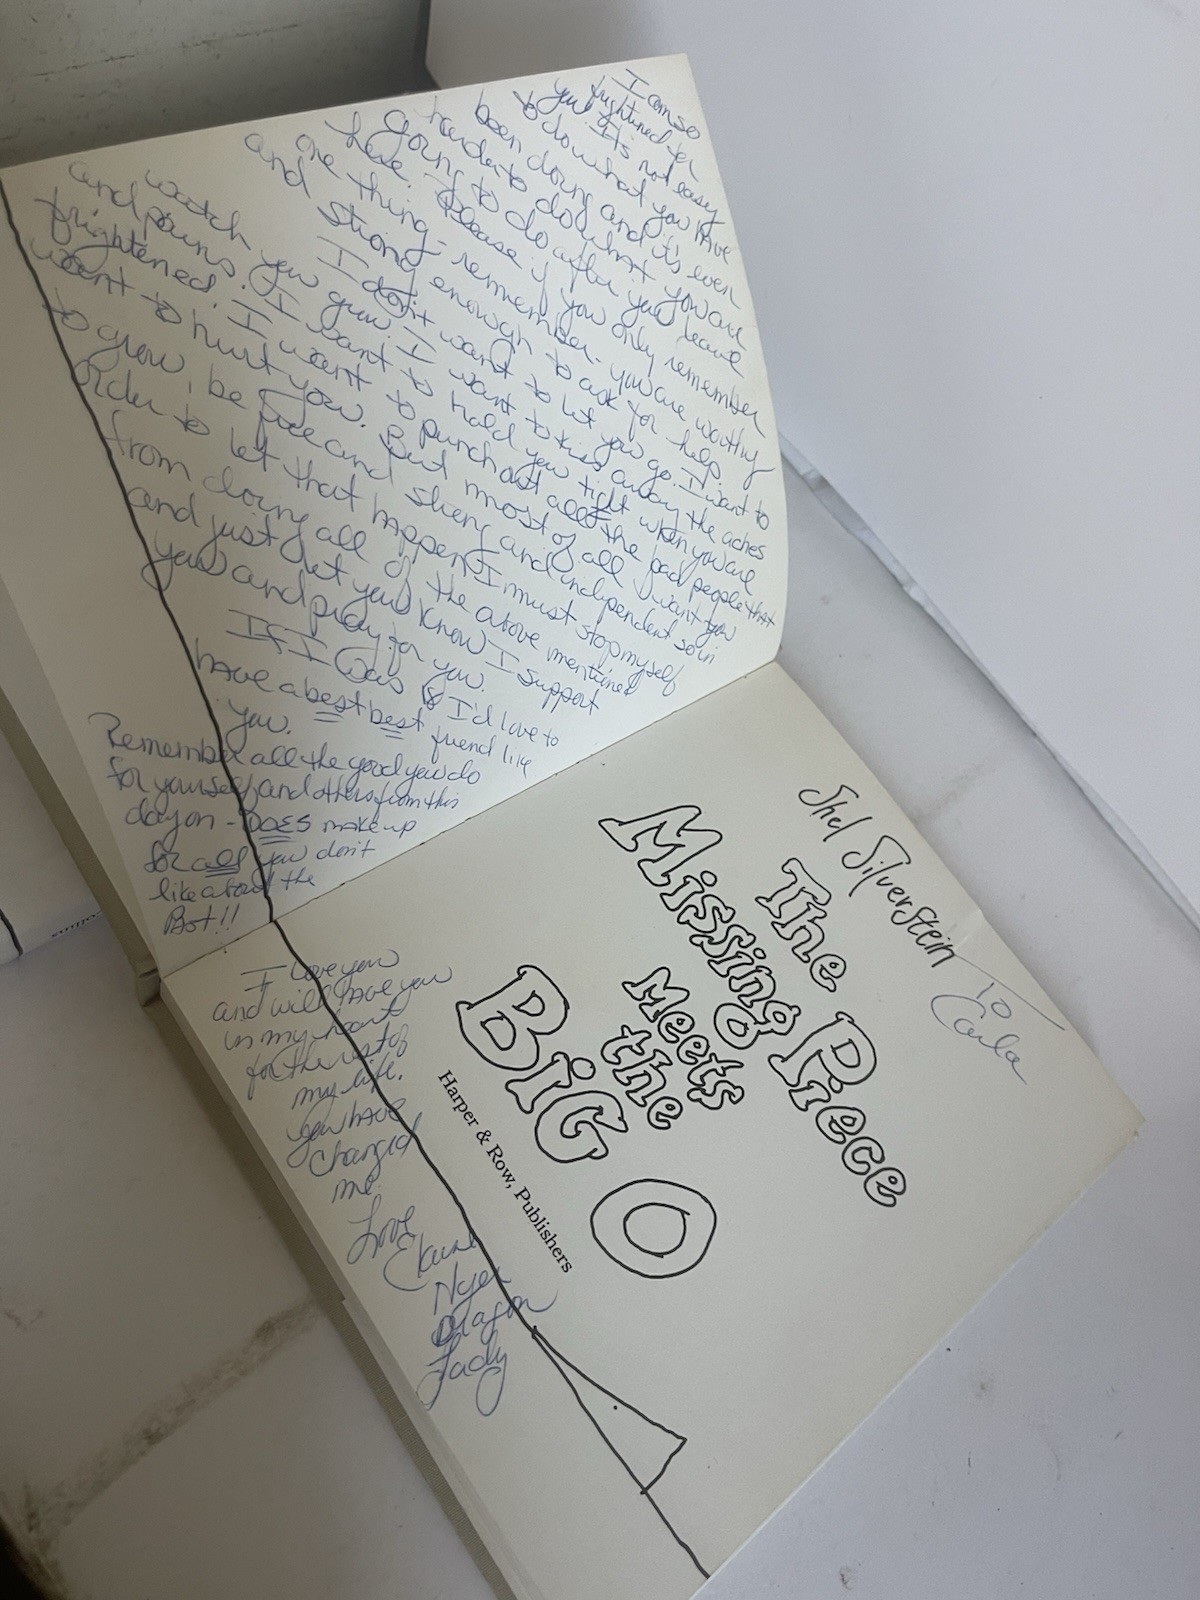 I am so
frightened for
you. It's not easy
to do what you have
been doing and it's even
harder to do what you are
going to do after you leave
here. Please if you only remember
one thing - remember - you are worthy
and strong enough to ask for help.
I don't want to let you go. I want to
watch you grow. I want to kiss away the aches
and pains. I want to hold you tight when you are
frightened. I want to punch out all the bad people that
want to hurt you. But most of all I want you
to grow, be free and strong and independent so in
order to let that happen I must stop myself
from doing all of the above mentioned
and just let you know I support
you and pray for you.
If I was 8 I'd love to
have a best best friend like
you.
Remember all the good you do
for yourself and others from this
day on - DOES make up
for all you don't
like about the
Past!!
Shel Silverstein
To
Carla
The
Missing Piece
Meets
the
BiG O
Harper & Row, Publishers
I love you
and will have you
in my heart
for the rest of
my life.
You have
changed
me.
Love
Elaine
Nyer
Dragon
Lady